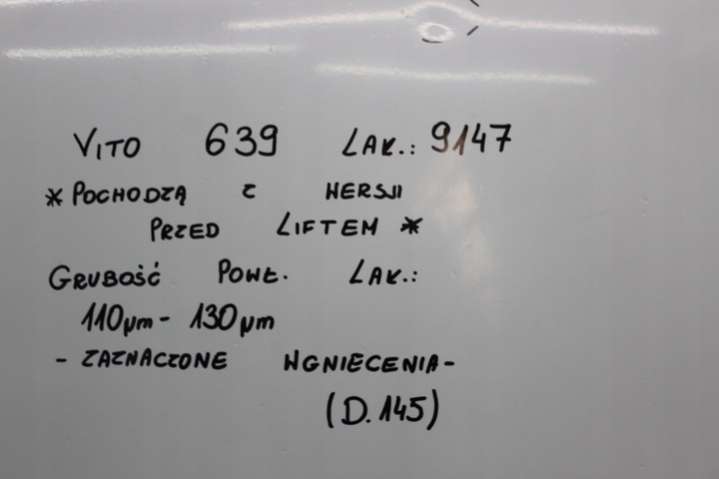 VITO 639 LAK.: 9147
* POCHODZĄ Z WERSJI
PRZED LIFTEM *
GRUBOŚĆ POWŁ. LAK.:
110µm - 130µm
- ZAZNACZONE WGNIECENIA -
(D.145)